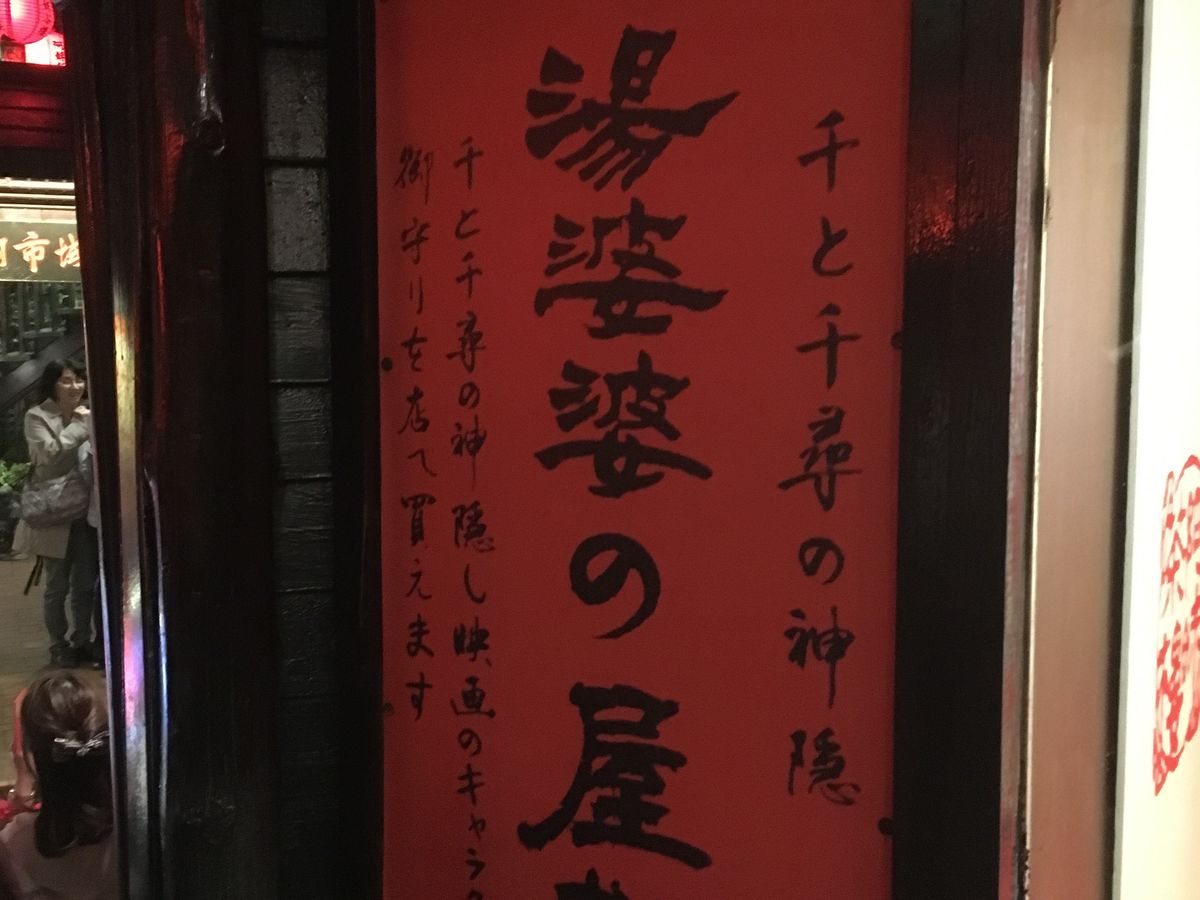 千と千尋の神隠
湯婆婆の屋
千と千尋の神隠し映画のキャラク
御守りを店で買えます
市場